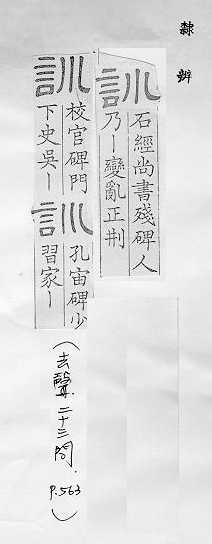 隸辨
訓石經尚書殘碑人
乃|變亂正刑
訓校官碑門
下史吳|訓孔宙碑少
習家|
(去聲.二十三問.
P.563)